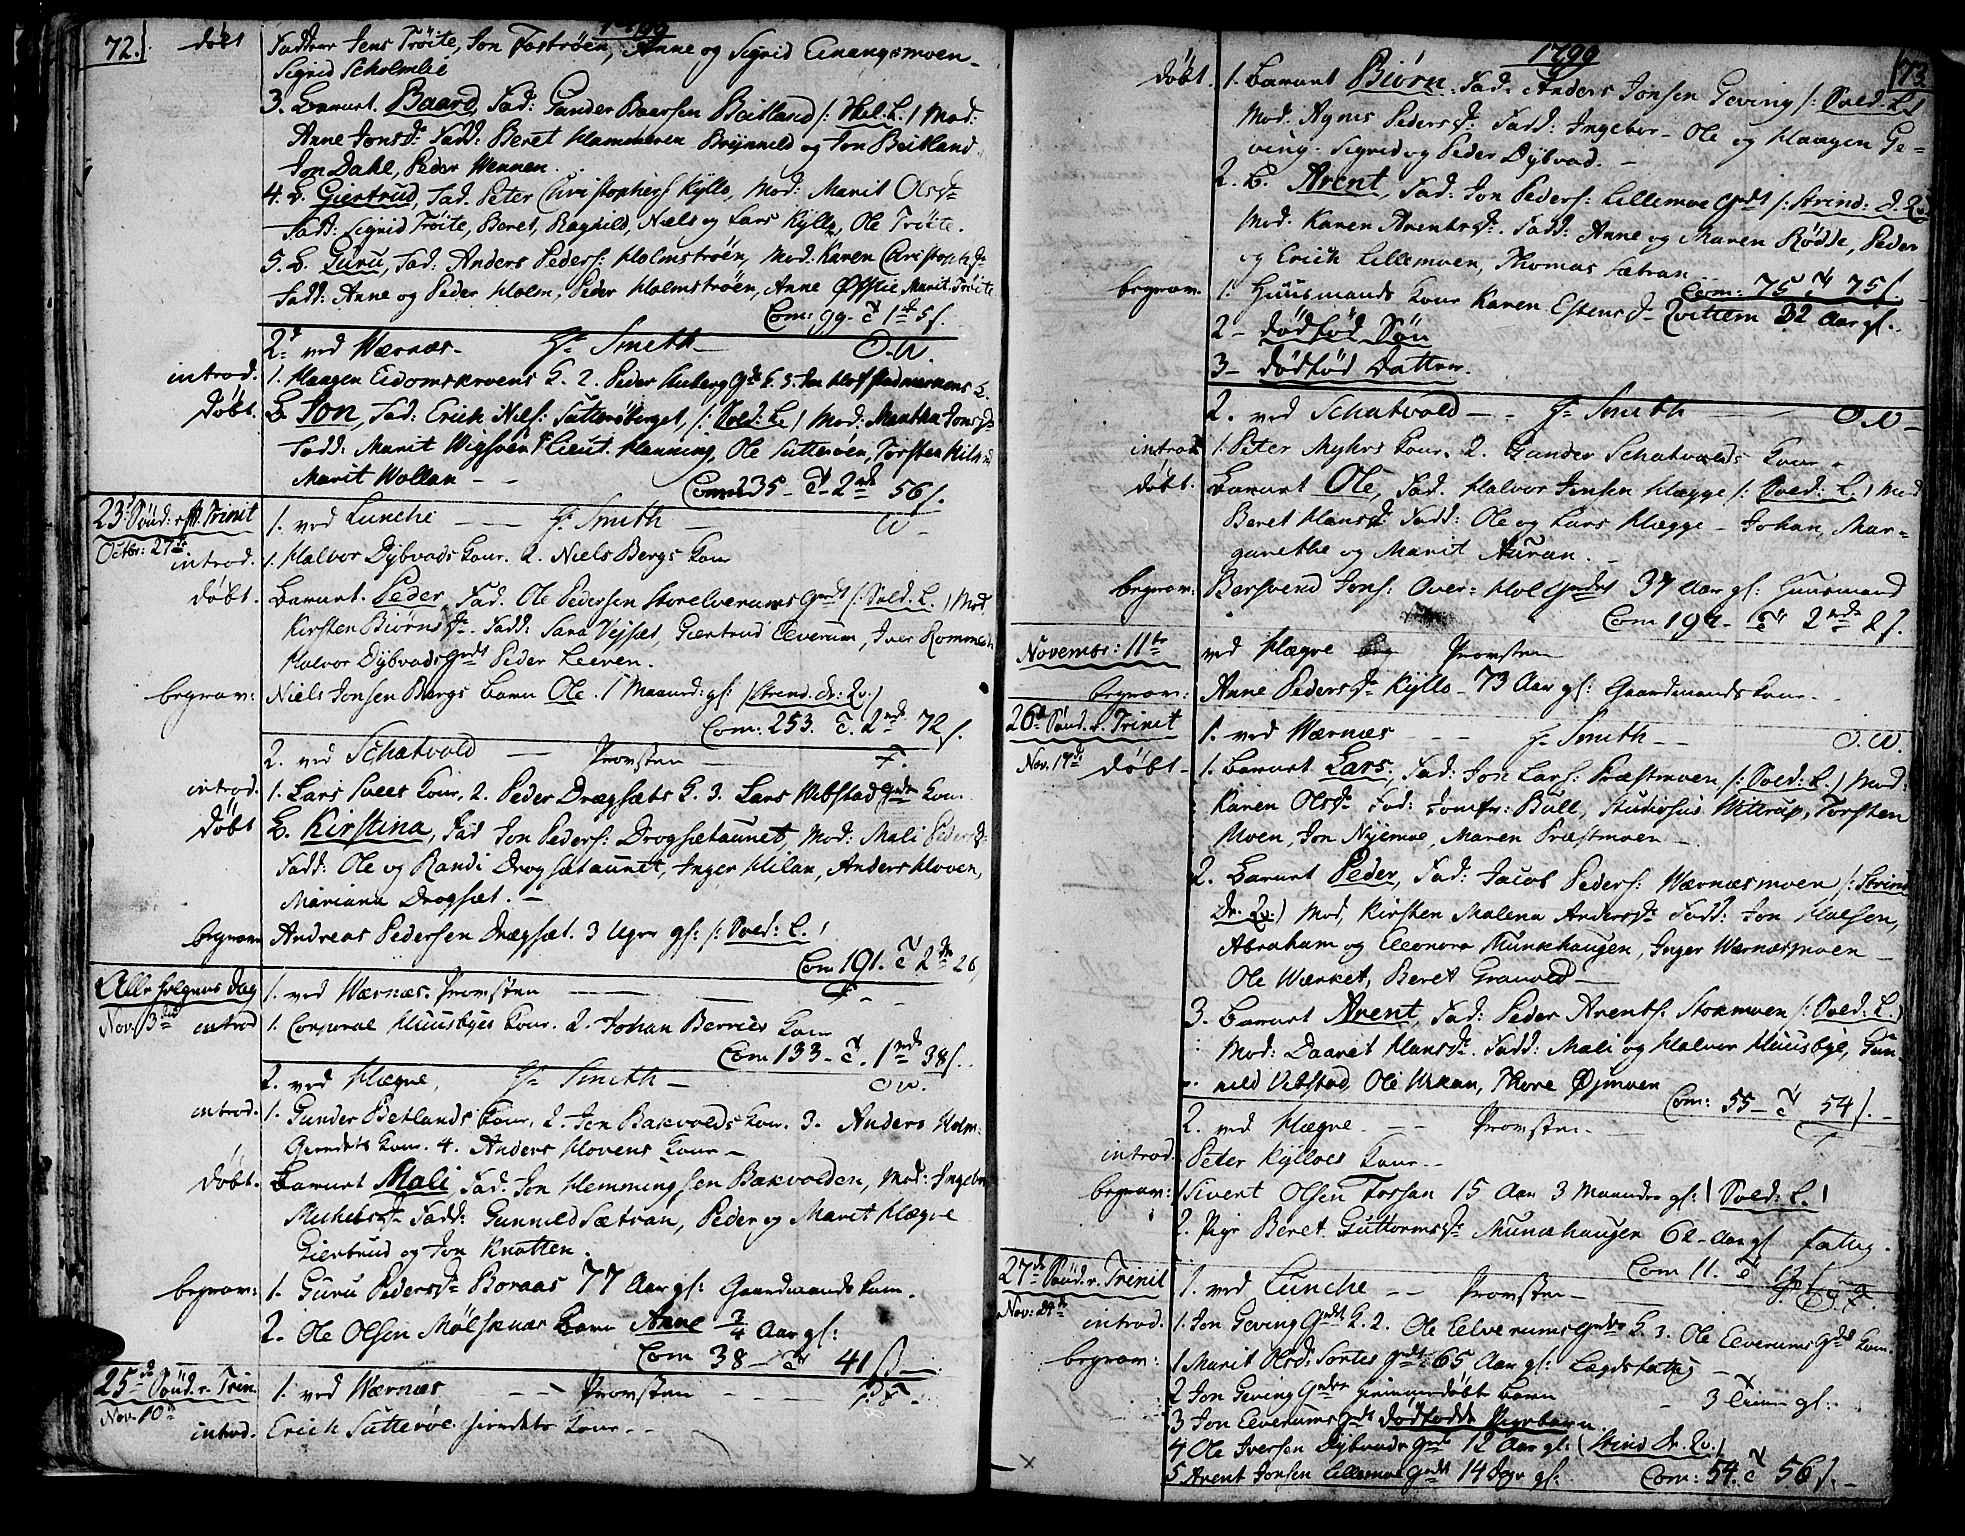 72. 1799
døbt Faddere Jens Tröite, Jon Fostroen, Anne og Sigrid Einangsmoen
Sigrid Scholmlie
3. Barnet. Baard, Fad: Gunder Baarsen Beitland /: Skel. L. / Mod:
Anne Jonsdr. Fadd: Beret Hammeren Brynnild og Jon Beitland
Jon Dahl, Peder Wennen.
4. B. Giertrud, Fad. Peter Christophers Kyllo, Mod: Marit Olsdr
Fadd: Sigrid Tröite, Beret, Raghild, Niels og Lars Kyllo, Ole Tröite.
5. B. Guru, Fad. Anders Peders: Holmströen, Mod. Karen Christophdr
Fadd: Anne og Peder Holm, Peder Holmströen, Anne Øfstie Marit Tröite
Com: 99- c 1 5 s.
2. ved Wærnæs - Hr Smith - O.W.
introd. 1. Haagen Eidomskroens K. 2. Peder Huberg Gds K. 3. Jon Hofstadmarkens K.
døbt. B. Jon, Fad: Erich Niels: Sutterøberget, /: Sold: L. / Mod: Martha Jonsdr
Fadd: Marit Wigsøen Lieut. Henning, Ole Sutterøen, Torsten Kiln
Marit Wollan - -
Com 235 - c 2 mk 56 s.
23de Sönd: eft. Trinit 1. ved Lunche - Hr Smith - W -
Octbr: 27de introd. 1. Halvor Dybvads Kone. 2. Niels Bergs Kone
døbt. Barnet. Peder, Fad. Ole Pedersen Storelverums Gds /: Sold. L. / Mod
Kirsten Biörnsdr. Fadd: Sara Vejsæt, Giertrud Elverum, Iver Romme
Halvor Dybvads Gds Peder Leeren.
begrav: Niels Jonsen Bergs barn Ole. 1 Maaned: gl: /Strind. dr. Qv:/
Com: 253. c. 2 mk. 72 s.
2. ved Schatvold - Provsten - F.
introd. 1. Lars Svees Kone, 2. Peder Drægsæts K. 3. Lars Wibstad Gds Kone
døbt B. Kirstina, Fad Jon Peders: Drogsætaunet, Mod: Mali Pedersdr
Fadd: Ole og Randi Drogsetaunet, Inger Hilan, Anders Hoven,
Mariana Drogset. -
begrav Andreas Pedersen Drægsæt. 3 Uger gl: /: Sold: L. /
Com 191. c 2 mk 26
Alle helgens Dag 1. ved Wærnæs. Provsten - F -
Nov. 3die introd 1. Corporal Huusbyes Kone. 2. Johan Berries Kone
Com 133 - c. 1 mk 38 s.
2. ved Hægre, Hr Smith - OW.
introd. 1. Gunder Beitlands Kone, 2. Jon Bakvolds Kone. 3. Anders Holm-
Gerndts Kone. 4. Anders Hovens Kone -
døbt. Barnet Mali, Fad. Jon Hemmingsen Bakvolden, Mod: Ingebr
Mickelsdr Fadd: Gunnild Sætran, Peder og Marit Hægre
Giertrud og Jon Knotten.
begrav: 1. Guru Pedersdr Boraas 77 Aar gl: Gaardmands Kone.
2. Ole Olsen Mølsknæs Barn Anne 3/4 Aar gl:
Com 38 - c 41 s -
25de Sönd. e. Trin. 1. ved Wærnæs - Provsten - F -
Nov. 10de introd. Erich Sutterøe Kone - -
1799 73
døbt. 1. Barnet Biörn. Fad. Anders Jonsen Geving /: Sold. L/
Mod. Agnes Pedersdr. Fadd: Ingebor- Ole og Haagen Ge=
ving. Sigrid og Peder Dybvad. -
2. B. Arent, Fad: Jon Peders: Lillemoe Gds /: Strind: d. Qv:
Mod. Karen Arentsdr. Fadd: Anne og Maren Rödde, Peder
og Erich Lillemoen, Thomas Sætran
Com: 75 c 75 s.
begrav. 1. Huusmands Kone Karen Estensdr Qvitlem 32 Aar gl.
2 - dødfød Søn
3 - dødfød Datter.
2. ved Schatvold - - Hr Smith - OW -
introd 1. Peter Myhrs Kone. 2. Gunder Schatvolds Kone.
døbt. Barnet Ole, Fad. Halvor Jensen Hægge /: Sold: L. / Mod
Beret Hansdr Fadd: Ole og Lars Hægge - Johan, Mar=
garethe og Marit Auran. -
begrav: Bersvend Jons: Over= Hol Gdes 37 Aar gl: Huusmand
Com 194 - c 2 mk 2 s.
Novembr: 11te ved Hægre Provsten
begrav: Anne Pedersdr Kyllo - 73 Aar gl: Gaardmands Kone -
26de Sönd. e. Trinit 1. ved Wærnæs - - Hr Smith - - O.W.
Nov. 17de døbt - 1. Barnet Lars, Fad: Jon Lars: Præstmoen /: Sold: L. / Mod:
Karen Olsdr Fad: Jomfr: Bull, Studiosus Wittrup, Torsten
Moen, Jon Nyemoe, Maren Præstmoen -
2. Barnet Peder, Fad: Jacob Peders: Wærnæsmoen /: Strind
Dr. Qv:/ Mod, Kirsten Malena Andersdr Fadd: Jon Halsen,
Abraham og Eleonora Munkhaugen, Inger Wærnæsmoen -
Ole Wærket, Beret Granvold -
3. Barnet Arent, Fad: Peder Arents: Stokmoen /: Sold: L./
Mod: Daaret Hansdr. Fadd: Mali og Halvor Huusbye, Gun
nild Vibstad, Ole Wikan, Thore Øjmoen
Com: 55 - c 54 s. -
2. ved Hægre. - - Provsten - F
introd. Peter Kylloes Kone - -
begrav: 1 Sivert Olsen Fossan 15 Aar 3 Maaneder gl: / Sold: L. /
2. Pige Beret Guttormsdr Munkhaugen 62 - Aar gl fattig.
Com 11. c
27de Sönd. e. Trinit 1. ved Lunche - - Provsten - F.
Nov: 24de introd. 1. Jon Geving Gds K. 2. Ole Elverums Gds K. 3. Ole Elverums Gds Kone.
begrav: 1 Marit Olsd: Sortes Gds 65 Aar gl: Lægdsfattig -
2 Jon Geving Gds hjemmedøbt barn - 3 Timer gl:
3 Jon Elverums Gds dødfødt Pigebarn
4 Ole Iversen Dybvads Gds 12 Aar gl: (Strind Dr. Qv:/
5 Arent Jonsen Lillemoe Gds 14 Dage gl: Com: 54. c 56 s. -